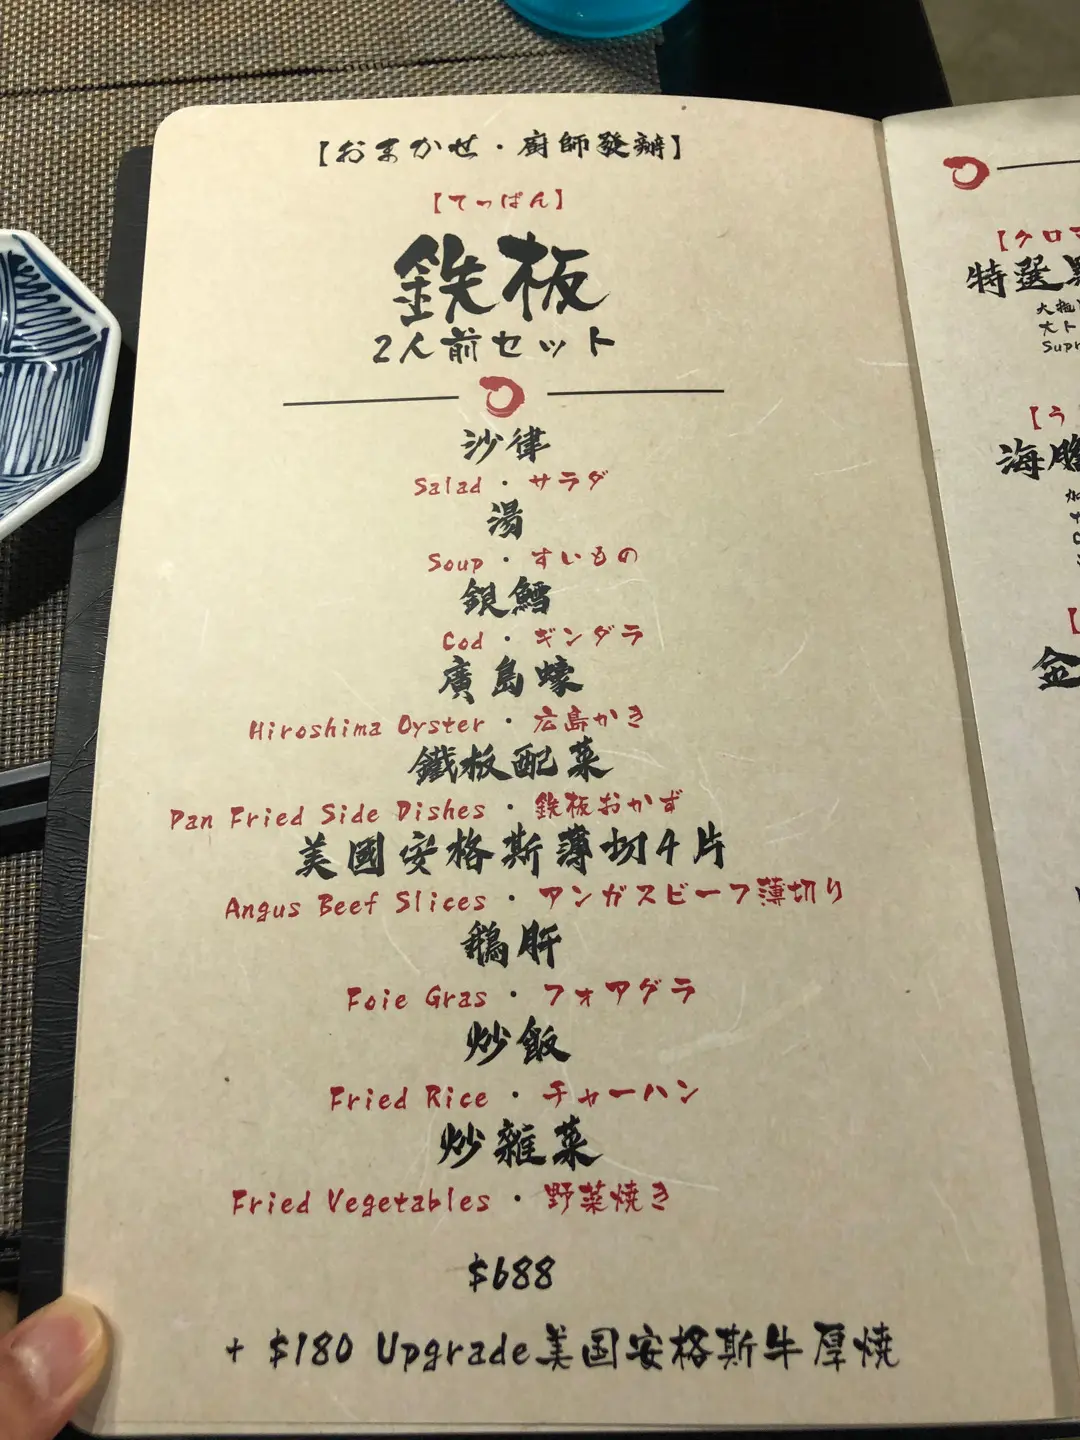 【おまかせ・廚師發辦】
【てっぱん】
鉄板
2人前セット
沙律
Salad・サラダ
湯
Soup・すいもの
銀鱈
Cod・ギンダラ
廣島蠔
Hiroshima Oyster・広島かき
鐵板配菜
Pan Fried Side Dishes・鉄板おかず
美國安格斯薄切4片
Angus Beef Slices・アンガスビーフ薄切り
鵝肝
Foie Gras・フォアグラ
炒飯
Fried Rice・チャーハン
炒雜菜
Fried Vegetables・野菜焼き
$688
+ $180 Upgrade美国安格斯牛厚燒
【クロマ
特選
大ト
Supr
【う
海膽
【
金